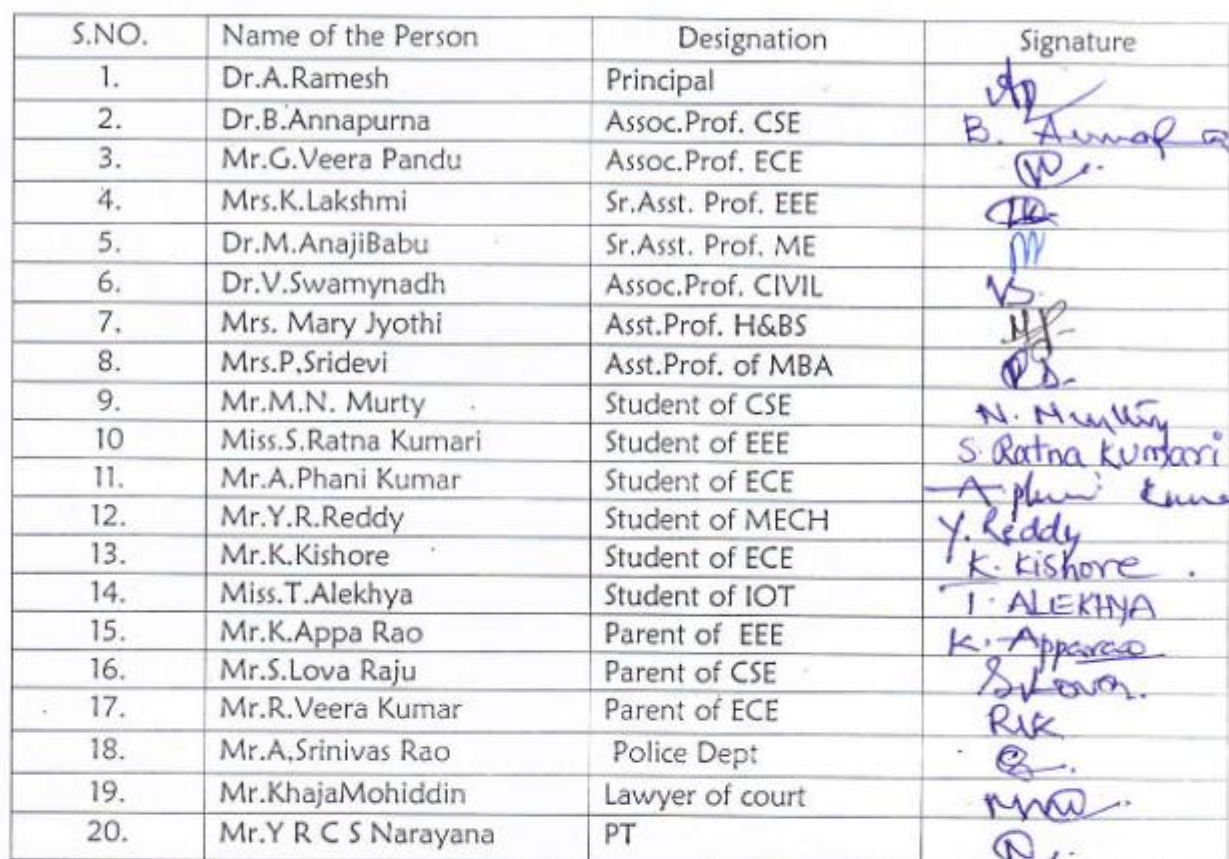 S.NO. Name of the Person Designation Signature
1. Dr.A.Ramesh Principal
2. Dr.B.Annapurna Assoc.Prof. CSE B.
3. Mr.G.Veera Pandu Assoc.Prof. ECE
4. Mrs.K.Lakshmi Sr.Asst. Prof. EEE
5. Dr.M.AnajiBabu Sr.Asst. Prof. ME
6. Dr.V.Swamynadh Assoc.Prof. CIVIL VS.
7. Mrs. Mary Jyothi Asst.Prof. H&BS
8. Mrs.P.Sridevi Asst.Prof. of MBA
9. Mr.M.N. Murty Student of CSE N.
10 Miss.S.Ratna Kumari Student of EEE S. Ratna Kumari
11. Mr.A.Phani Kumar Student of ECE A
12. Mr.Y.R.Reddy Student of MECH Y. Reddy
13. Mr.K.Kishore Student of ECE K. Kishore.
14. Miss.T.Alekhya Student of IOT T. ALEKHYA
15. Mr.K.Appa Rao Parent of EEE K. Apparao
16. Mr.S.Lova Raju Parent of CSE
17. Mr.R.Veera Kumar Parent of ECE RVK
18. Mr.A.Srinivas Rao Police Dept
19. Mr.KhajaMohiddin Lawyer of court
20. Mr.Y R C S Narayana PT